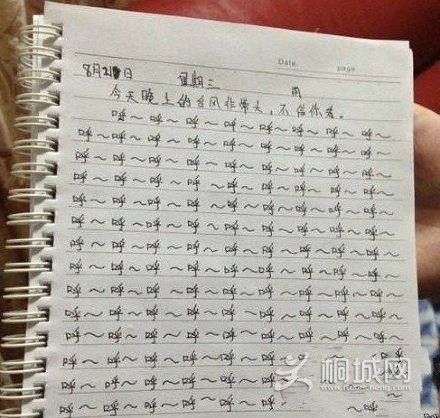 Date. page
8月21日 星期三 雨
今天晚上的台风非常大，不信你看。
呼～呼～呼～呼～呼～呼～呼～呼～
呼～呼～呼～呼～呼～呼～呼～呼～呼～
呼～呼～呼～呼～呼～呼～呼～呼～呼～
呼～呼～呼～呼～呼～呼～呼～呼～呼～
呼～呼～呼～呼～呼～呼～呼～呼～呼～
呼～呼～呼～呼～呼～呼～呼～呼～呼～
呼～呼～呼～呼～呼～呼～呼～呼～呼～
呼～呼～呼～呼～呼～呼～呼～呼～
呼～呼～呼～呼～呼～呼～呼～呼～呼～
呼～呼～呼～呼～呼～呼～呼～呼～呼～
呼～呼～呼～呼～呼～呼～呼～呼～呼～
呼～呼～呼～呼～呼～呼～ 呼
呼～呼～呼～呼～呼～
呼～呼～呼～呼～呼～ ～呼
桐城网